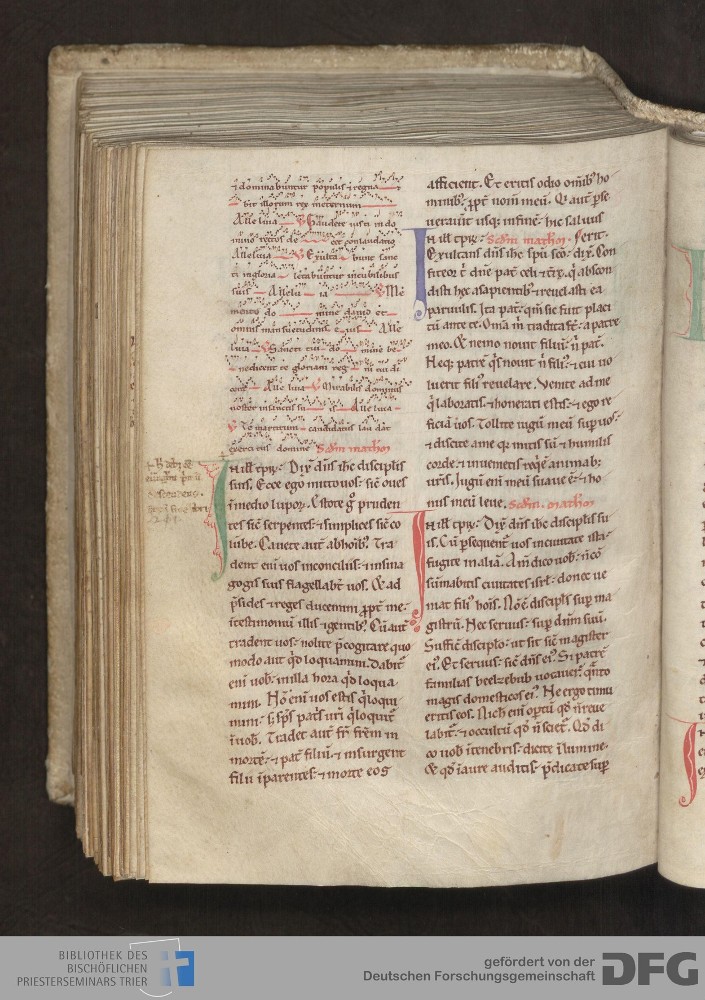 & dominabuntur populis & regna — &
bit illorum rex ineternum —
Alleluia — V Gaudete iusti in do
mino rectos de — cet conlaudatio
Alleluia — V Exulta — bunt sanc
ti ingloria — letabuntur incubilibus
suis — Allelu — ia — V Me
mento do — mine dauid et
omnis mansuetudinis eius — Alle
luia — V Sancti tui do — mine be
nedicent te gloriam reg — ni tui di
cent — Alle luia — V Mirabilis dominus
noster insanctis su — is — Alle luia —
V Te martirum — candidatus lau dat
exercitus domine Scdm mathm
IN ill tpr̄. Dix̄ dn̄s ih̄c disciplis
suis. Ecce ego mitto uos. sic̄ oues
īmedio lupoꝝ. Estote g̊ pruden
tes sic̄ serpentes. & simplices sic̄ co
lūbe. Cauete aut̄ abhoīb;. Tra
dent enī uos inconciliis. & insina
gogis suis flagellabt̄ uos. Et ad
p̄sides & reges ducemini ꝓpt̄ me.
ītestimoniū illis & gentib;. Cū aut̄
tradent uos. nolite p̄cogitare quo
modo aut qd̄ loquamini. dabit̄
enī uob̄. inilla hora qd̄ loqua
mini. Nō enī uos estis q̄ loqui
mini. s; sp̄s patr̄s ur̄i q̄ loquit̄
ī uob̄. Tradet aut̄ fr̄ frēm in
mortē. & pat̄ filiū. & insurgent
filii īparentes. & morte eos
afficient. Et eritis odio om̄ib; ho
minib;. ꝓpt̄ nom̄ meū. Q aut̄ p̄se
uerauit usq; infinē. hic saluus
IN ill tpr̄. Scdm mathm. / erit.
Exultans dn̄s ih̄c sp̄u scō. dix̄. Con
fiteor t̄ dn̄e pat̄ celi & tr̄ę. q̄ abscon
disti hec asapientib; & reuelasti ea
paruulis. Ita pat̄. qm̄ sic̄ fuit placi
tū ante te. Om̄a m̄ tradita st̄. a patre
meo. Et nemo nouit filiū n̄ pat̄.
Neq; patrē q̄s nouit n̄ fili;. & cui uo
luerit fili; reuelare. Venite ad me
q̄ laboratis. & honerati estis. & ego re
ficiā uos. Tollite iugū meū sup̄ uos.
& discite ame q̄ mitis sū & humilis
corde. & inuenietis req̄ē animab;
ur̄is. Jugū enī meū suaue ē. & ho
nus meū leue. Scdm. mathm
IN ill tpr̄. Dix̄ dn̄s ih̄c disciplis su
is. Cū p̄sequent̄ uos inciuitate ista.
fugite in aliā. Am̄ dico uob̄. n̄ cō
sūmabitis ciuitates isrl̄. donec ue
niat fili; hoīs. Nō ē discipl̄s sup̄ ma
gistrū. Nec seruus. sup̄ dn̄m suū.
Sufficit discip̄lo. ut sit sic̄ magister
ei;. Et seruus. sic̄ dn̄s ei;. Si patrē
familias beelzebub uocauer̄. q̄nto
magis domesticos ei;. Ne ergo timu
eritis eos. Nich̄ enī optū qd̄ n̄ reue
labit̄. & occultū qd̄ n̄ sciet̄. Qd̄ di
co uob̄ ītenebris. dicite ī lumine.
Et qd̄ ī aure auditis. p̄dicate sup̄
BIBLIOTHEK DES
BISCHÖFLICHEN
PRIESTERSEMINARS TRIER
gefördert von der
Deutschen Forschungsgemeinschaft
DFG